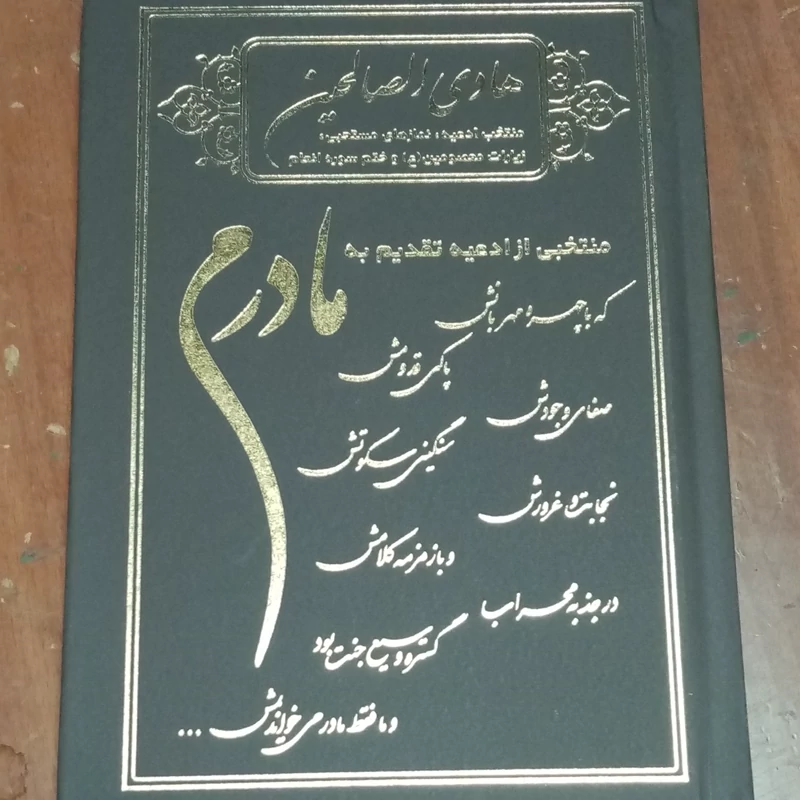 هادی الصالحین
منتخب ادعیه، نمازهای مستحبی،
زیارات معصومین(ع) و ختم سوره انعام
منتخبی از ادعیه تقدیم به
مادرم
که با چهره مهربانش
پاکی قدومش
صفای وجودش
سنگینی سکوتش
نجابت و غرورش
و با زمزمه کلامش
در جذبه محرابها
گستره وسیع جنت بود
و ما فقط مادر می خواندیمش ...